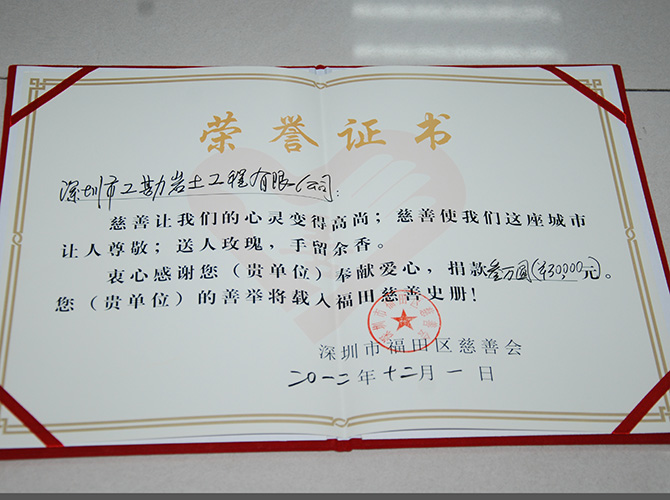 荣誉证书
深圳市工勘岩土工程有限公司：
慈善让我们的心灵变得高尚；慈善使我们这座城市
让人尊敬；送人玫瑰，手留余香。
衷心感谢您（贵单位）奉献爱心，捐款叁万圆(¥30,000元)。
您（贵单位）的善举将载入福田慈善史册！
深圳市福田区慈善会
二〇一二年十二月一日